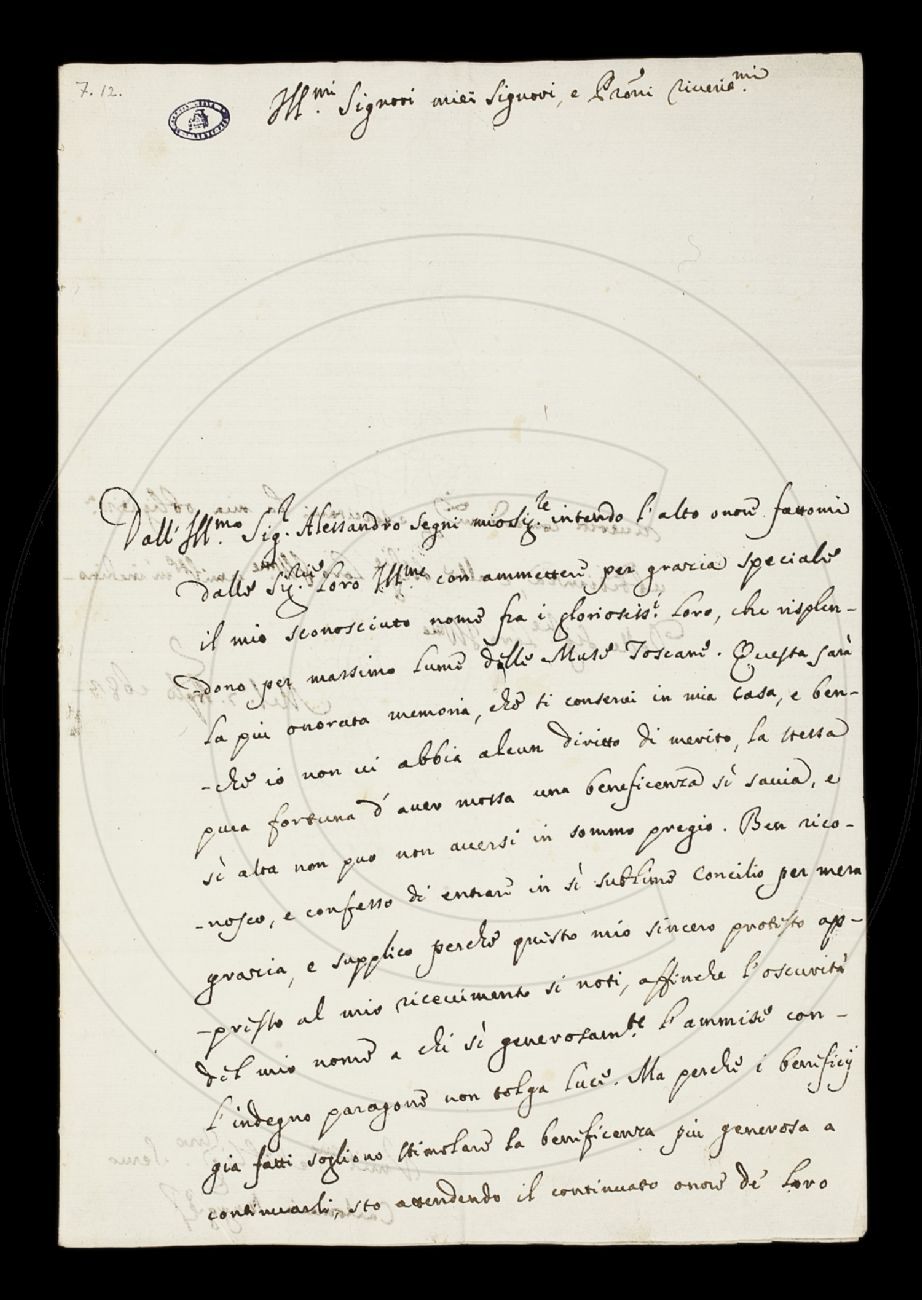 7. 12.
Ill.mi Signori miei Signori, e Pròni riveris.mi
Dall' Ill.mo Sig.r Alessandro Segni mio Sig.re intendo l'alto onore fattomi
dalle Sig.rie Loro Ill.me con ammettere per grazia speciale
il mio sconosciuto nome fra i gloriosiss.i Loro, che risplen-
-dono per massimo lume delle Muse Toscane. Questa sarà
la più onorata memoria, che si conservi in mia Casa, e ben-
-che io non vi abbia alcun diritto di merito, la stessa
pura fortuna d'aver mossa una beneficenza sì savia, e
sì alta non puo non aversi in sommo pregio. Ben rico-
-nosco, e confesso di entrare in sì sublime Concilio per mera
grazia, e supplico perche questo mio sincero protesto ap-
-presso al mio ricevimento si noti, affinche l'oscurità
del mio nome a chi sì generosam.te l'ammise con-
l'indegno paragone non tolga luce. Ma perche i beneficij
gia fatti sogliono stimolare la beneficenza piu generosa a
continuarli, sto attendendo il continuato onore de Loro